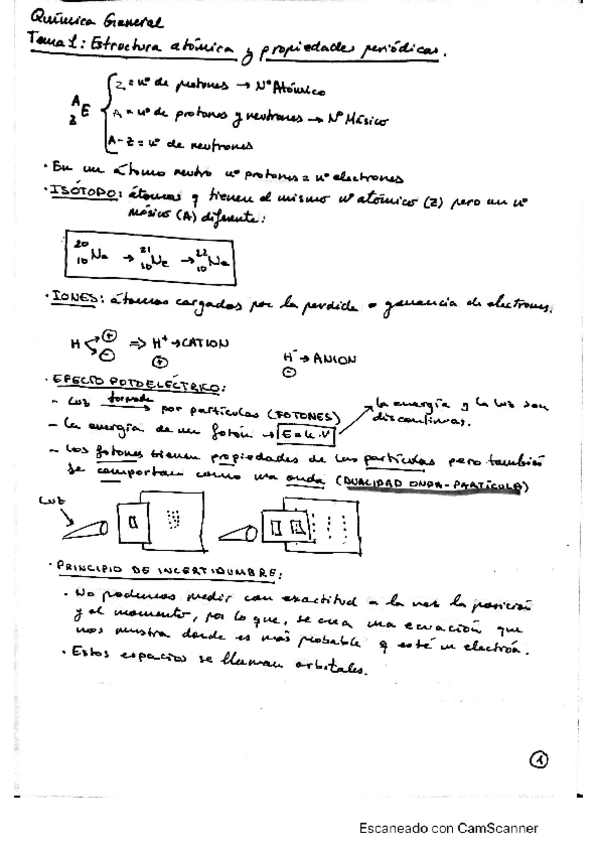 Química General
Tema 1: Estructura atómica y propiedades periódicas.
Z = nº de protones → Nº Atómico
A Z E
A = nº de protones y neutrones → Nº Másico
A-Z = nº de neutrones
· En un átomo neutro nº protones = nº electrones
· ISÓTOPO: átomos q tienen el mismo nº atómico (Z) pero un nº
másico (A) diferente:
20 10 Ne → 21 10 Ne → 22 10 Ne
· IONES: átomos cargados por la perdida o ganancia de electrones.
H < + - ⇒ H⁺ → CATION
+
H⁻ → ANION
-
· EFECTO FOTOELÉCTRICO:
- Luz formada → por partículas (FOTONES)
- La energía de un fotón → E = h·ν
→ la energía y la luz son
discontinuas.
- Los fotones tienen propiedades de las partículas pero también
se comportan como una onda (DUALIDAD ONDA-PARTÍCULA)
Luz
· PRINCIPIO DE INCERTIDUMBRE:
· No podemos medir con exactitud a la vez la posición
y el momento, por lo que, se crea una ecuación que
nos muestra donde es más probable q esté un electrón.
· Estos espacios se llaman orbitales.
1
Escaneado con CamScanner